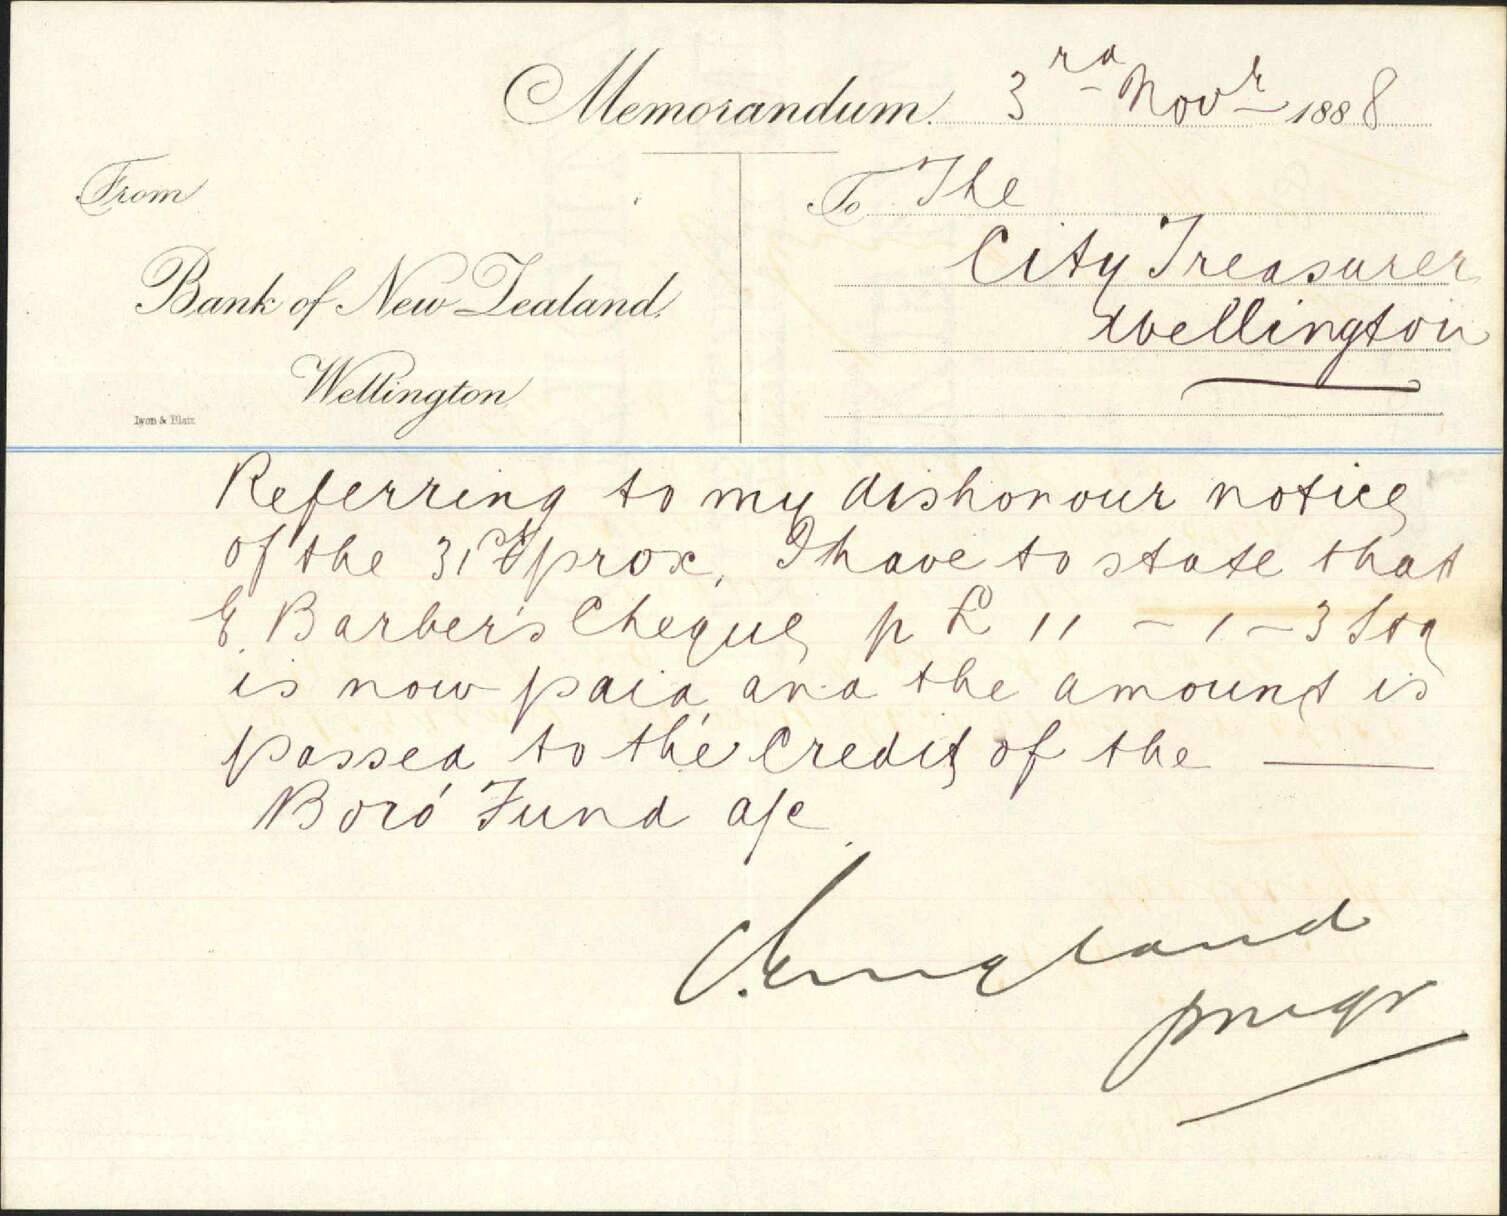 Memorandum. 3rd Novr 1888
From
To The
City Treasurer
Bank of New Zealand,
Wellington
Wellington
Lyon & Blair
Referring to my dishonour notice
of the 31st prox, I have to state that
E. Barber's Cheque p £ 11 - 1 - 3 Stg
is now paid and the amount is
passed to the Credit of the
Boro' Fund a/c
C. England
pmgr